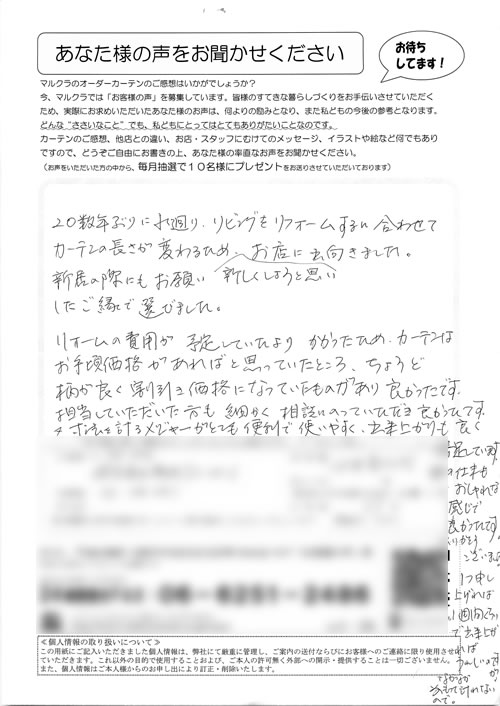 あなた様の声をお聞かせください
お待ち
してます！
マルクラのオーダーカーテンのご感想はいかがでしょうか？
今、マルクラでは「お客様の声」を募集しています。皆様のすてきな暮らしづくりをお手伝いさせていただく
ため、実際にお求めいただいたあなた様のお声は、何よりの励みとなり、また私どもの今後の参考となります。
どんな“ささいなこと”でも、私どもにとってはとてもありがたいことなのです。
カーテンのご感想、他店との違い、お店・スタッフにむけてのメッセージ、イラストや絵など何でもあり
ですので、どうぞご自由にお書きの上、あなた様の率直なお声をお聞かせください。
（お声をいただいた方の中から、毎月抽選で１０名様にプレゼントをお送りさせていただいております）
20数年ぶりに水廻り、リビングをリフォームするに合わせて
カーテンの長さが変わるため、お店に出向きました。
新居の際にもお願い 新しくしようと思い
したご縁で選びました。
リフォームの費用が予定していたより かかったため、カーテンは
お手頃価格があればと思っていたところ、ちょうど
柄が良く割引き価格になっていたものがあり良かったです。
担当していただいた方も細かく相談にのっていただき良かったです。
寸法を計るメジャーがとても便利で使いやすく、出来上がりも良く
おしゃれな
感じで
良かったです。
ありがとう
ございました
06-6251-2486
≪個人情報の取り扱いについて≫
この用紙にご記入いただきました個人情報は、弊社にて厳重に管理し、ご案内の送付ならびにお客様へのご連絡に限り使用させ
ていただきます。これ以外の目的で使用することおよび、ご本人の許可無く外部への開示・提供することは一切ございません。
また、個人情報はご本人様からのお申し出により訂正・削除いたします。